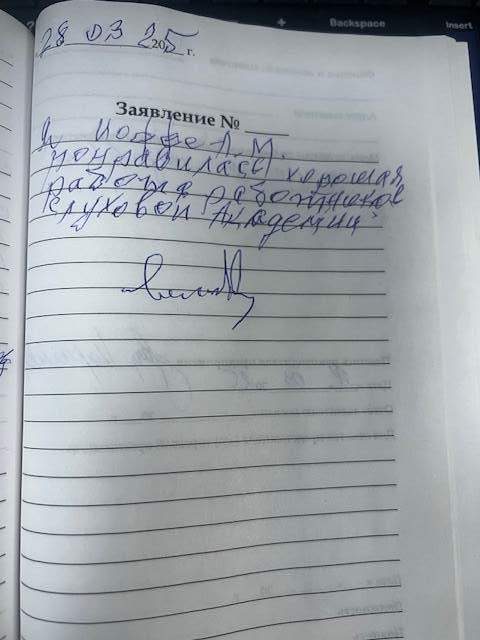 Backspace
Insert
28 03 2025 г.
Заявление №
Я Иоффе А.М.
понравилась хорошая
работа работников
Слуховой Академии